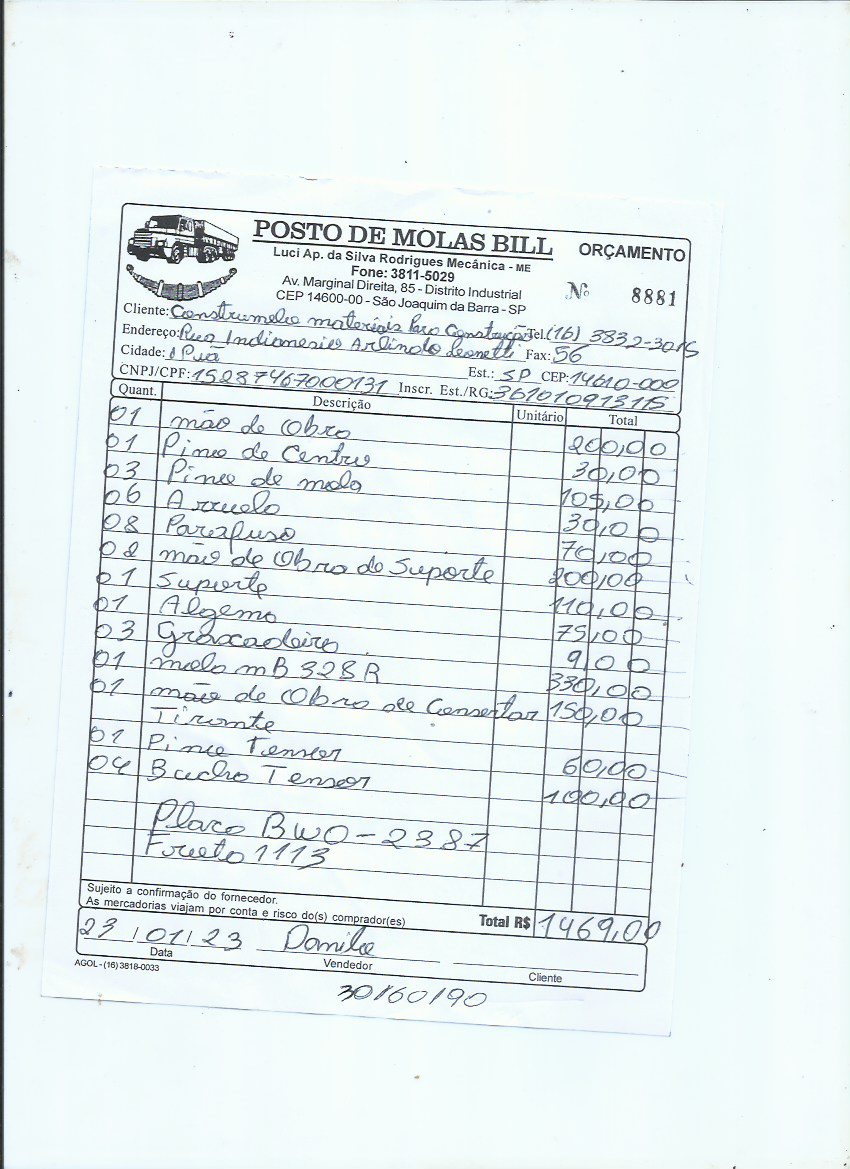 POSTO DE MOLAS BILL ORÇAMENTO
Luci Ap. da Silva Rodrigues Mecânica - ME
Fone: 3811-5029
Av. Marginal Direita, 85 - Distrito Industrial
CEP 14600-00 - São Joaquim da Barra - SP
Nº 8881
Cliente: Construmelo materiais Para Construção Tel. (16) 3832-3015
Endereço: Rua Arlindo Fax: 56
Cidade: Ipuã Est.: SP CEP: 14610-000
CNPJ/CPF: 15287467000131 Inscr. Est./RG: 361010913115
Quant. Descrição Unitário Total
01 mão de Obra 200,00
01 Pino de Centro 30,00
03 Pino de mola 105,00
06 Arruela 30,00
08 Parafuso 70,00
02 mão de Obra de Suporte 200,00
01 Suporte 110,00
01 Algema 75,00
03 Graxadeira 9,00
01 mola mB 328 R 330,00
01 mão de Obra de Consertar 150,00
Tirante
01 Pino Tensor 60,00
04 Bucha Tensor 100,00
Placa BWO-2387
1113
Sujeito a confirmação do fornecedor.
As mercadorias viajam por conta e risco do(s) comprador(es)
Total R$ 1469,00
23/01/23 Danilo
Data Vendedor Cliente
AGOL - (16) 3818-0033
30/60/90